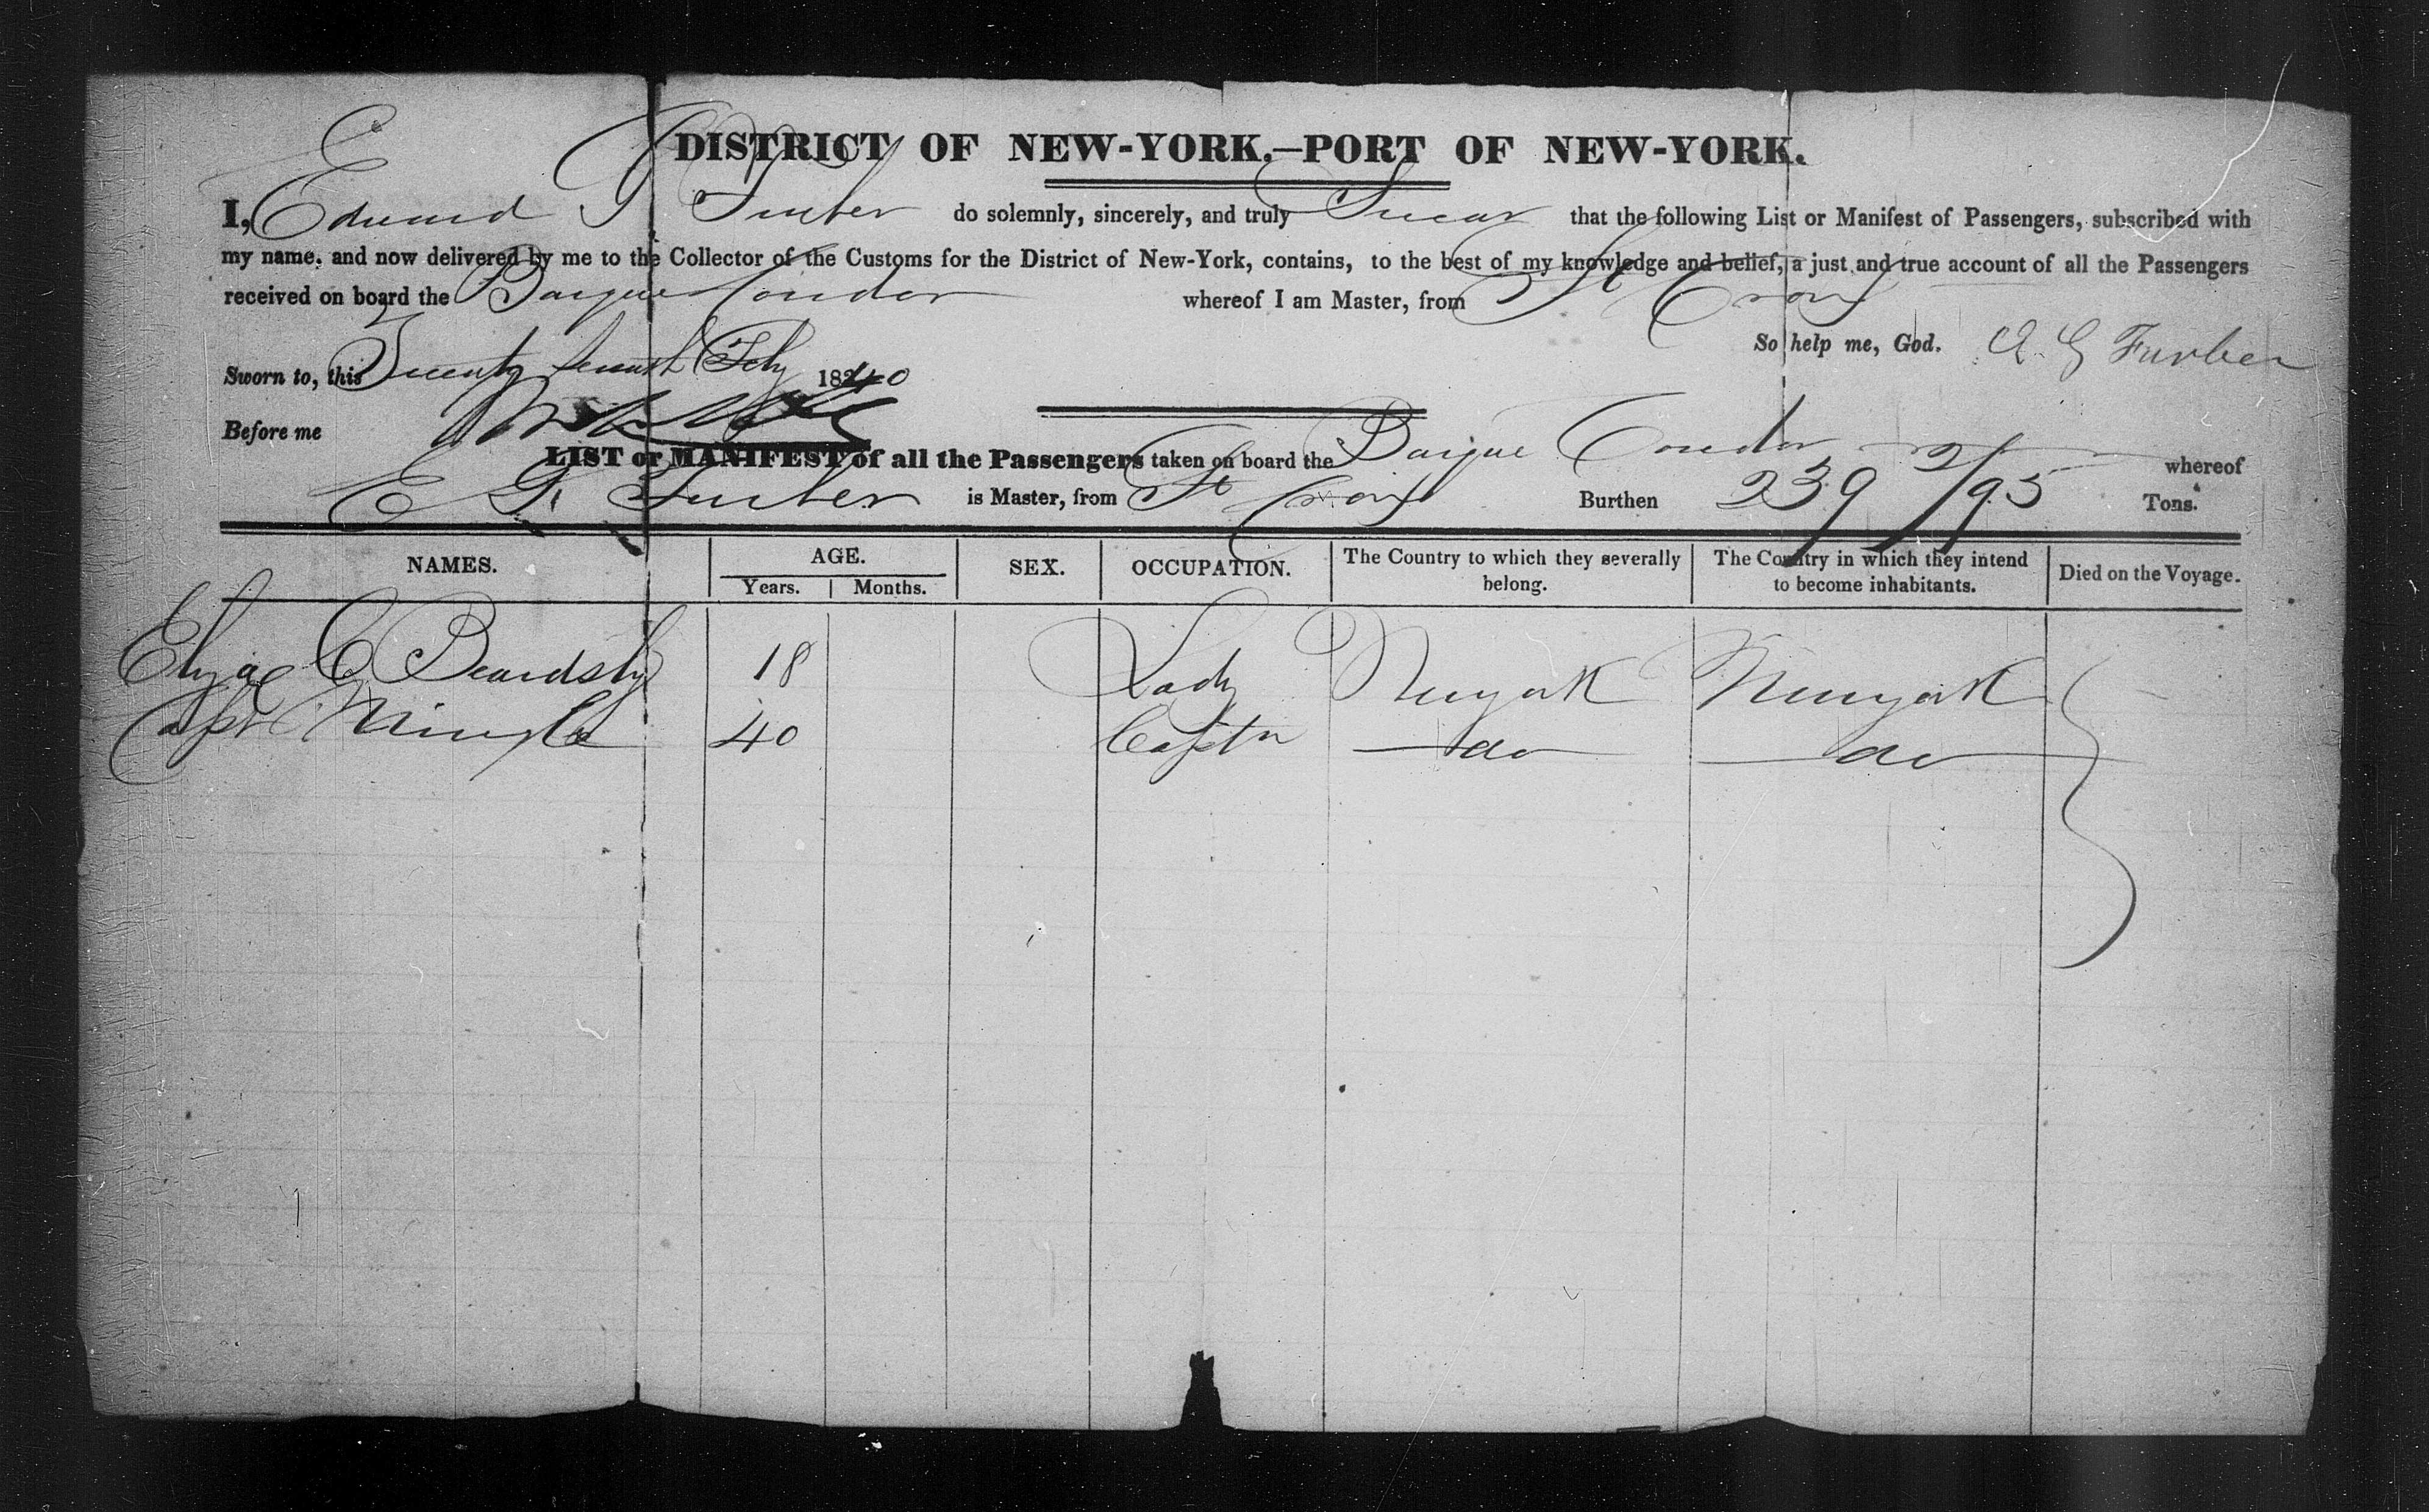 DISTRICT OF NEW-YORK.—PORT OF NEW-YORK.
I, Edward G Furber do solemnly, sincerely, and truly Swear that the following List or Manifest of Passengers, subscribed with
my name, and now delivered by me to the Collector of the Customs for the District of New-York, contains, to the best of my knowledge and belief, a just and true account of all the Passengers
received on board the Barque Condor whereof I am Master, from St Croix
So help me, God. E. G Furber
Sworn to, this Twenty seventh Feby 1840
Before me
LIST or MANIFEST of all the Passengers taken on board the Barque Condor whereof
E G. Furber is Master, from St Croix Burthen 239 2/95 Tons.
NAMES. AGE. SEX. OCCUPATION. The Country to which they severally belong. The Country in which they intend to become inhabitants. Died on the Voyage.
Years. Months.
Eliza C Beardsly 18 Lady Newyork Newyork
Capt 40 Captn do do